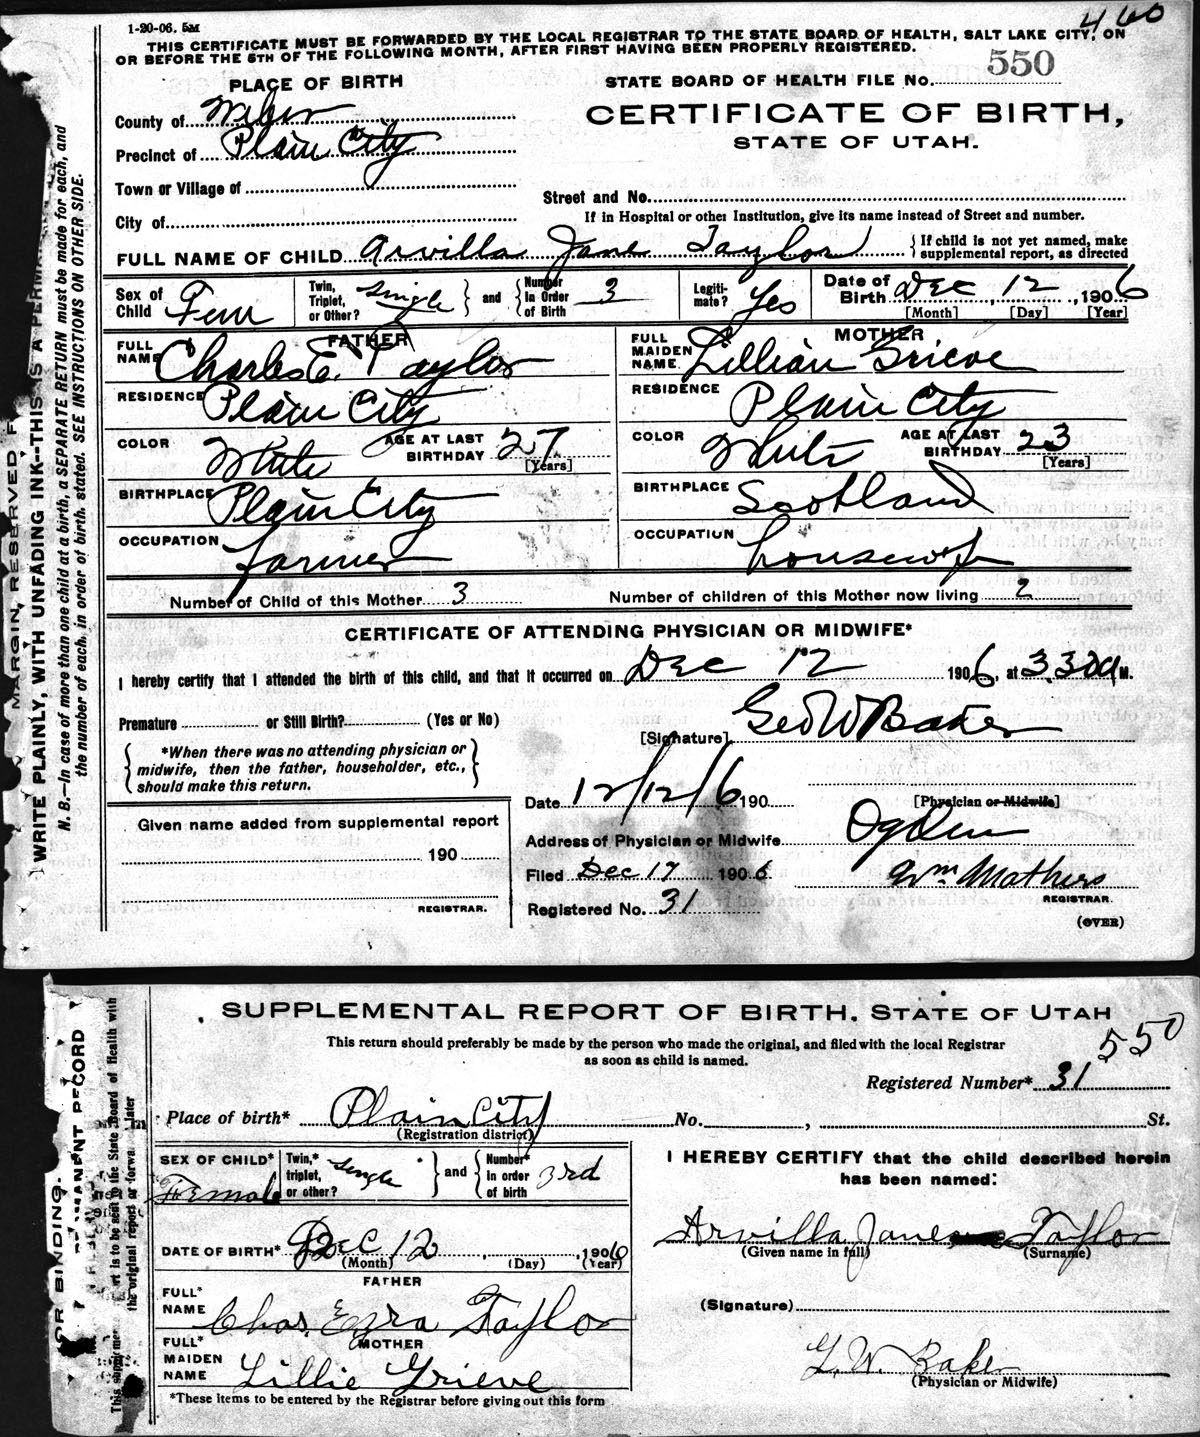 460
1-20-06. 5M
THIS CERTIFICATE MUST BE FORWARDED BY THE LOCAL REGISTRAR TO THE STATE BOARD OF HEALTH, SALT LAKE CITY, ON
OR BEFORE THE 5TH OF THE FOLLOWING MONTH, AFTER FIRST HAVING BEEN PROPERLY REGISTERED.
PLACE OF BIRTH
STATE BOARD OF HEALTH FILE No. 550
County of Weber
CERTIFICATE OF BIRTH,
Precinct of Plain City
STATE OF UTAH.
Town or Village of
Street and No.
City of
If in Hospital or other Institution, give its name instead of Street and number.
FULL NAME OF CHILD Arvilla Jane Taylor { If child is not yet named, make
supplemental report, as directed
Sex of Child Fem
Twin, Triplet, or Other? single } and { Number In Order of Birth 3
Legiti-mate? Yes
Date of Birth Dec 12, 1906
[Month] [Day] [Year]
FATHER
MOTHER
FULL NAME Charles E. Taylor
FULL MAIDEN NAME Lillian Grieve
RESIDENCE Plain City
RESIDENCE Plain City
COLOR White AGE AT LAST BIRTHDAY 27 [Years]
COLOR White AGE AT LAST BIRTHDAY 23 [Years]
BIRTHPLACE Plain City
BIRTHPLACE Scotland
OCCUPATION farmer
OCCUPATION housewife
Number of Child of this Mother 3
Number of children of this Mother now living 2
CERTIFICATE OF ATTENDING PHYSICIAN OR MIDWIFE*
I hereby certify that I attended the birth of this child, and that it occurred on Dec 12 1906, at 3.30 a M.
Premature or Still Birth? (Yes or No)
[Signature] Geo W Baker
{ *When there was no attending physician or
midwife, then the father, householder, etc.,
should make this return. }
Date 12/12/6 190
[Physician or Midwife]
Given name added from supplemental report
Address of Physician or Midwife Ogden
190
Filed Dec 17 1906
Wm Mathers
REGISTRAR.
REGISTRAR.
Registered No. 31
(OVER)
MARGIN, RESERVED F
WRITE PLAINLY, WITH UNFADING INK--THIS IS A PERMA
N. B.—In case of more than one child at a birth, a SEPARATE RETURN must be made for each, and
the number of each, in order of birth, stated. SEE INSTRUCTIONS ON OTHER SIDE.
SUPPLEMENTAL REPORT OF BIRTH, STATE OF UTAH
This return should preferably be made by the person who made the original, and filed with the local Registrar
as soon as child is named.
550
Registered Number* 31
Place of birth* Plain City No. , St.
(Registration district)
SEX OF CHILD* Female
Twin,* triplet, or other? Single } and { Number* in order of birth 3rd
I HEREBY CERTIFY that the child described herein
has been named:
Arvilla Jane Taylor
(Given name in full) (Surname)
DATE OF BIRTH* Dec 12, 1906
(Month) (Day) (Year)
FATHER
FULL* NAME Chas. Ezra Taylor
(Signature)
MOTHER
FULL* MAIDEN NAME Lillie Grieve
G. W. Baker
(Physician or Midwife)
*These items to be entered by the Registrar before giving out this form
OR BINDING.
MANENT RECORD